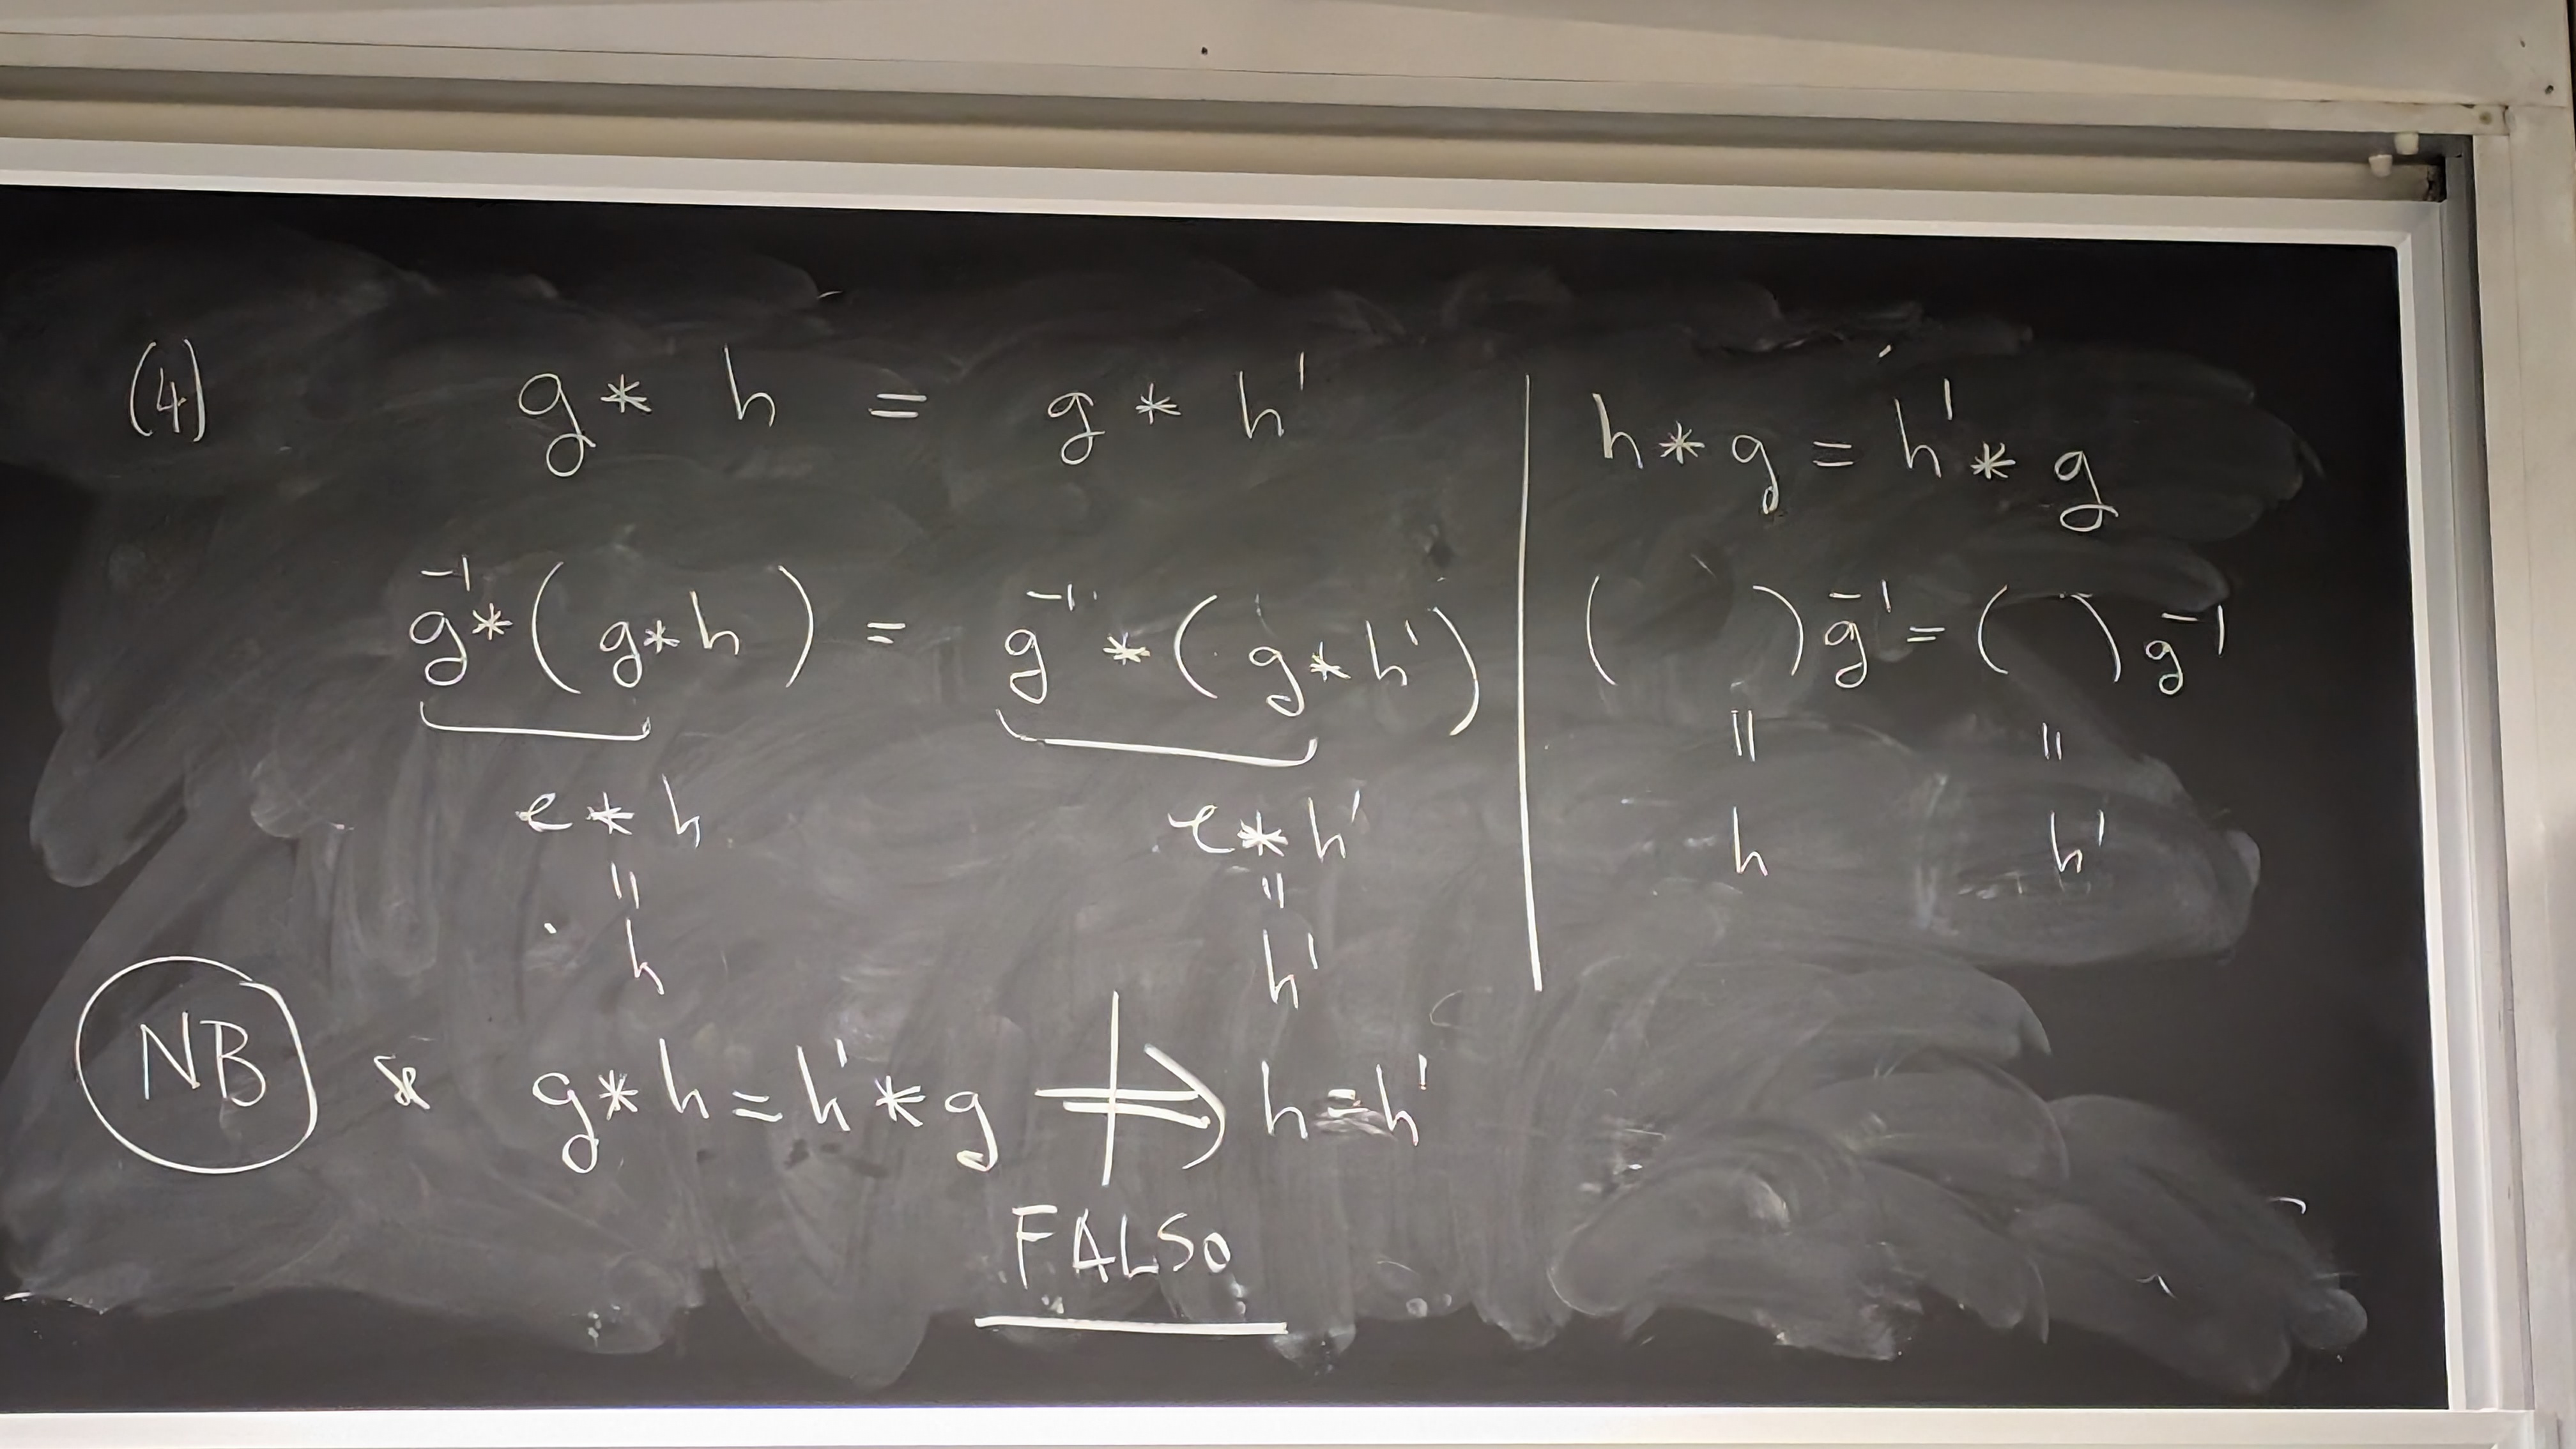 (4) g * h = g * h'
g⁻¹ * ( g * h ) = g⁻¹ * ( g * h' )
e * h e * h'
|| ||
h h'
h * g = h' * g
( ) g⁻¹ = ( ) g⁻¹
|| ||
h h'
NB * g * h = h' * g ⇏ h = h'
FALSO